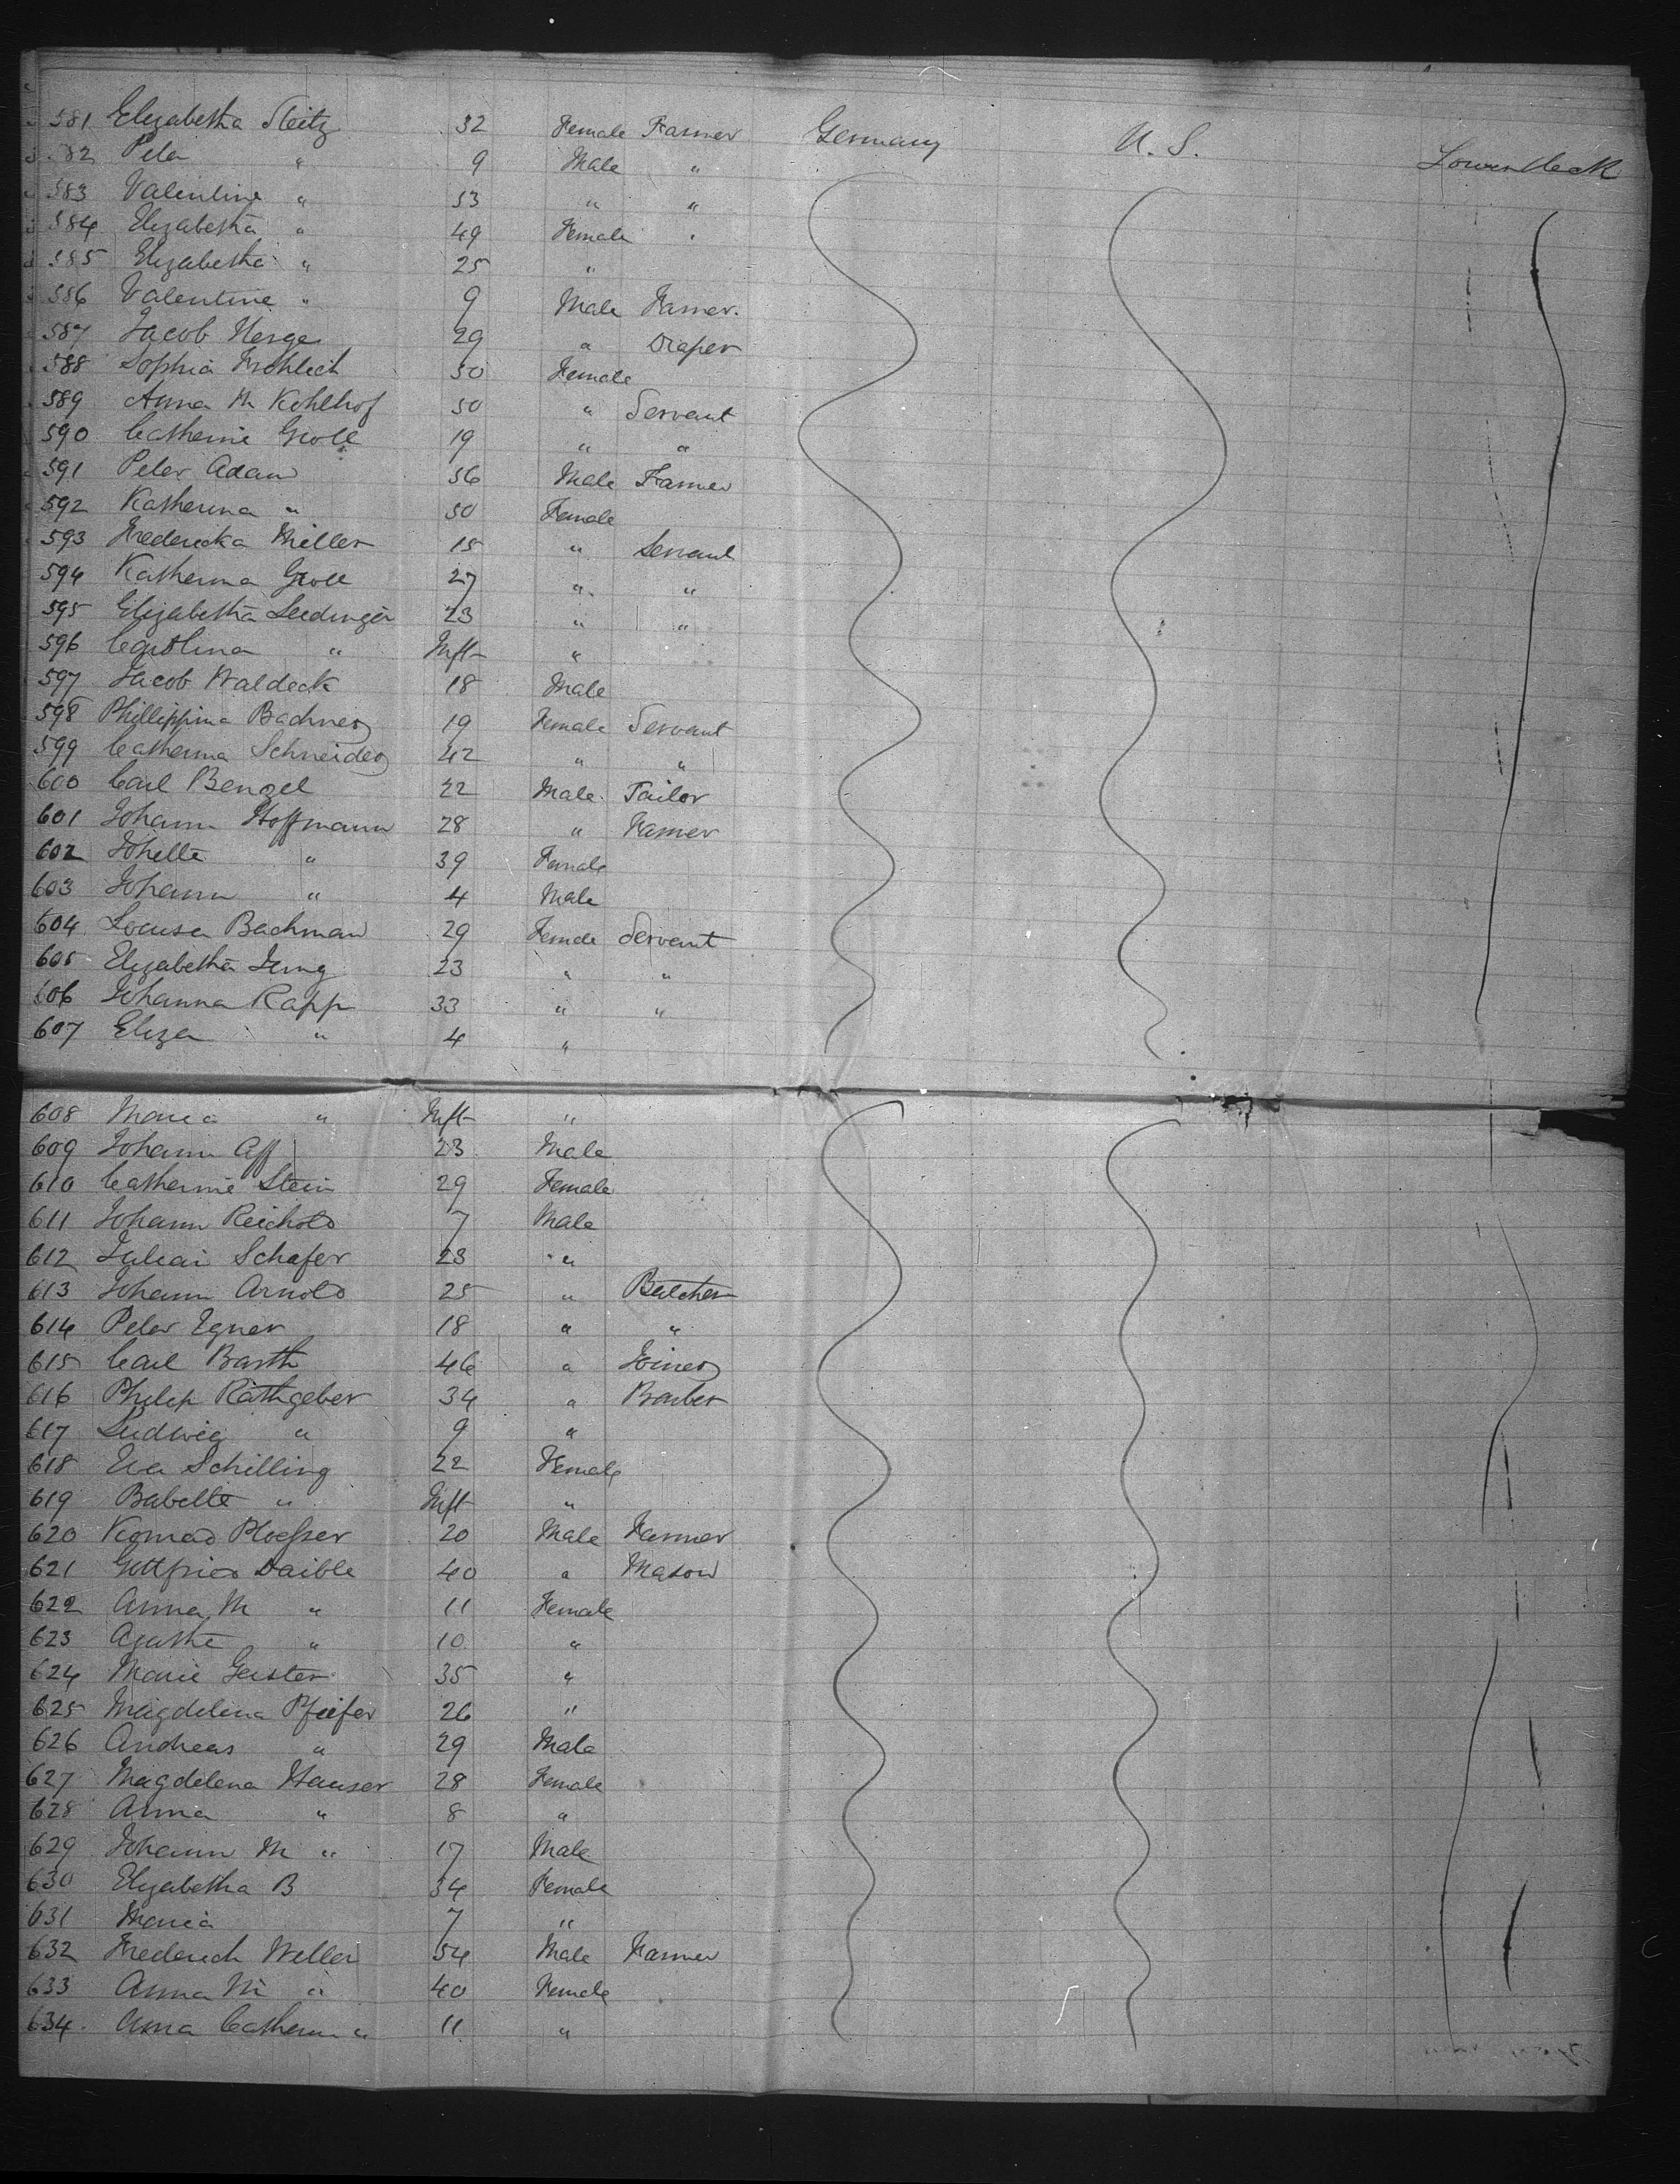 581 Elizabetha Steitz 32 Female Farmer Germany U. S. Lower Deck
582 Peter " 9 Male "
583 Valentine " 53 " "
584 Elizabetha " 49 Female "
585 Elizabetha " 25 "
586 Valentine " 9 Male Farmer.
587 Jacob Herge 29 " Draper
588 Sophia Frohlich 50 Female
589 Anna M Kohlhof 50 " Servant
590 Catherine Groll 19 " "
591 Peter Adam 56 Male Farmer
592 Katherina " 50 Female
593 Fredericka Miller 15 " Servant
594 Katherina Groll 27 " "
595 Elizabetha Leedinger 23 " "
596 Carolina " Inft "
597 Jacob Waldeck 18 Male
598 Phillippina Bachner 19 Female Servant
599 Catherina Schneider 42 " "
600 Carl Bengel 22 Male Tailor
601 Johann Hoffmann 28 " Farmer
602 Johette " 39 Female
603 Johann " 4 Male
604 Louisa Bachman 29 Female Servant
605 Elizabetha Jung 23 " "
606 Johanna Rapp 33 " "
607 Eliza " 4 "
608 Maria " Inft "
609 Johann Aff 23 Male
610 Catherine Stein 29 Female
611 Johann Reichold 7 Male
612 Julian Schafer 23 "
613 Johann Arnold 25 " Butcher
614 Peter Egner 18 " "
615 Carl Barth 46 " Joiner
616 Philip Rathgeber 34 " Barber
617 Ludwig " 9 "
618 Eva Schilling 22 Female
619 Babette " Inft "
620 Konrad Ploesser 20 Male Farmer
621 Gottfried Daible 40 " Mason
622 Anna M " 11 Female
623 Agathe " 10 "
624 Marie Gerster 35 "
625 Magdelina Pfeifer 26 "
626 Andreas " 29 Male
627 Magdelena Hauser 28 Female
628 Anna " 8 "
629 Johann M " 17 Male
630 Elizabetha B 34 Female
631 Maria 7 "
632 Frederich Weller 54 Male Farmer
633 Anna M " 40 Female
634 Anna Catherin " 11 "